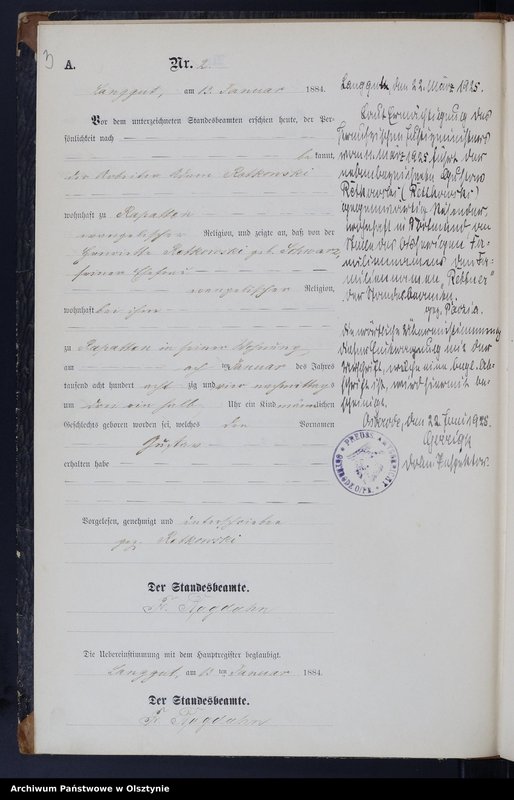 A.
Nr. 2.
Langgut, am 13. Januar 1884.
Vor dem unterzeichneten Standesbeamten erschien heute, der Per-
sönlichkeit nach
be kannt,
der Arbeiter
Retkowski
wohnhaft zu Rapatten
evangelischer Religion, und zeigte an, daß von der
Henriette Retkowski geb. Schwarz,
seiner Ehefrau
evangelischer Religion,
wohnhaft bei ihm
zu Rapatten in seiner Wohnung
am Januar des Jahres
tausend acht hundert acht zig und vier nachmittags
um ein halb Uhr ein Kind männlichen
Geschlechts geboren worden sei, welches den Vornamen
Gustav
erhalten habe
Vorgelesen, genehmigt und unterschrieben
gez. Retkowski
Der Standesbeamte.
F. Rogdahn
Die Uebereinstimmung mit dem Hauptregister beglaubigt.
Langgut, am 13 ten Januar 1884.
Der Standesbeamte.
F. Rogdahn
Langgut, den 22. März 1925.
Laut Ermächtigung des
Preußischen Justizministers
März 1925 führt der
nebenbezeichnete Gustav
Retkowski (Rettkowski)
gegenwärtig
wohnhaft in Dortmund an
Stelle des Fa-
miliennamens den Fa-
miliennamen „Rettner"
Der Standesbeamte.
gez.
Die wörtliche Übereinstimmung
dieser Eintragung mit der
Urschrift, welche eine begl. Ab-
schrift ist, wird hiermit be-
scheinigt.
Osterode, den 22. Juni 1925.
PREUSS. AMTSGERICHT
OSTERODE OSTPR.
Archiwum Państwowe w Olsztynie